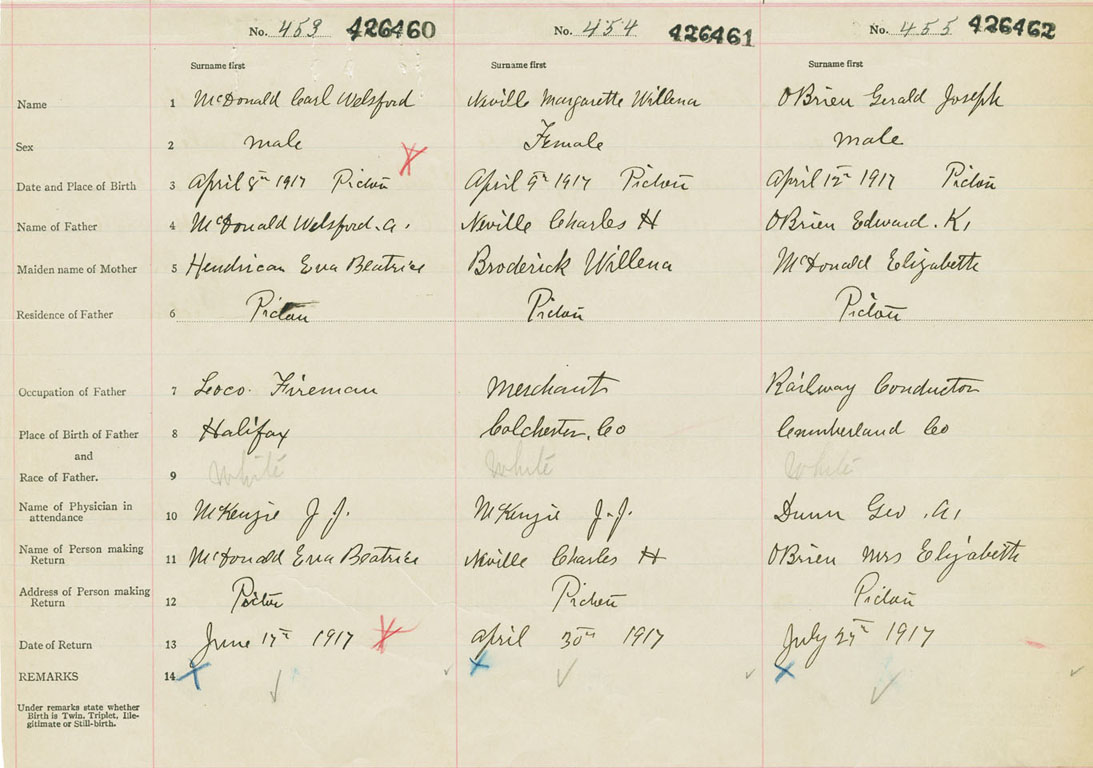 No. 453 426460 No. 454 426461 No. 455 426462
Surname first Surname first Surname first
Name 1 McDonald Carl Welsford Neville Margarette Willena OBrien Gerald Joseph
Sex 2 male Female male
Date and Place of Birth 3 April 8th 1917 Pictou April 9th 1917 Pictou April 12th 1917 Pictou
Name of Father 4 McDonald Welsford. A. Neville Charles H OBrien Edward. K.
Maiden name of Mother 5 Eva Beatrice Broderick Willena McDonald Elizabeth
Residence of Father 6 Pictou Pictou Pictou
Occupation of Father 7 Loco. Fireman Merchant Railway Conductor
Place of Birth of Father 8 Halifax Colchester. Co Cumberland Co
and
Race of Father. 9 White White White
Name of Physician in
attendance 10 McKenzie J J. McKenzie J. J. Dunn Geo. A.
Name of Person making
Return 11 McDonald Eva Beatrice Neville Charles H OBrien Mrs Elizabeth
Address of Person making
Return 12 Pictou Pictou Pictou
Date of Return 13 June 1917 April 30th 1917 July 1917
REMARKS 14
Under remarks state whether
Birth is Twin, Triplet, Ille-
gitimate or Still-birth.